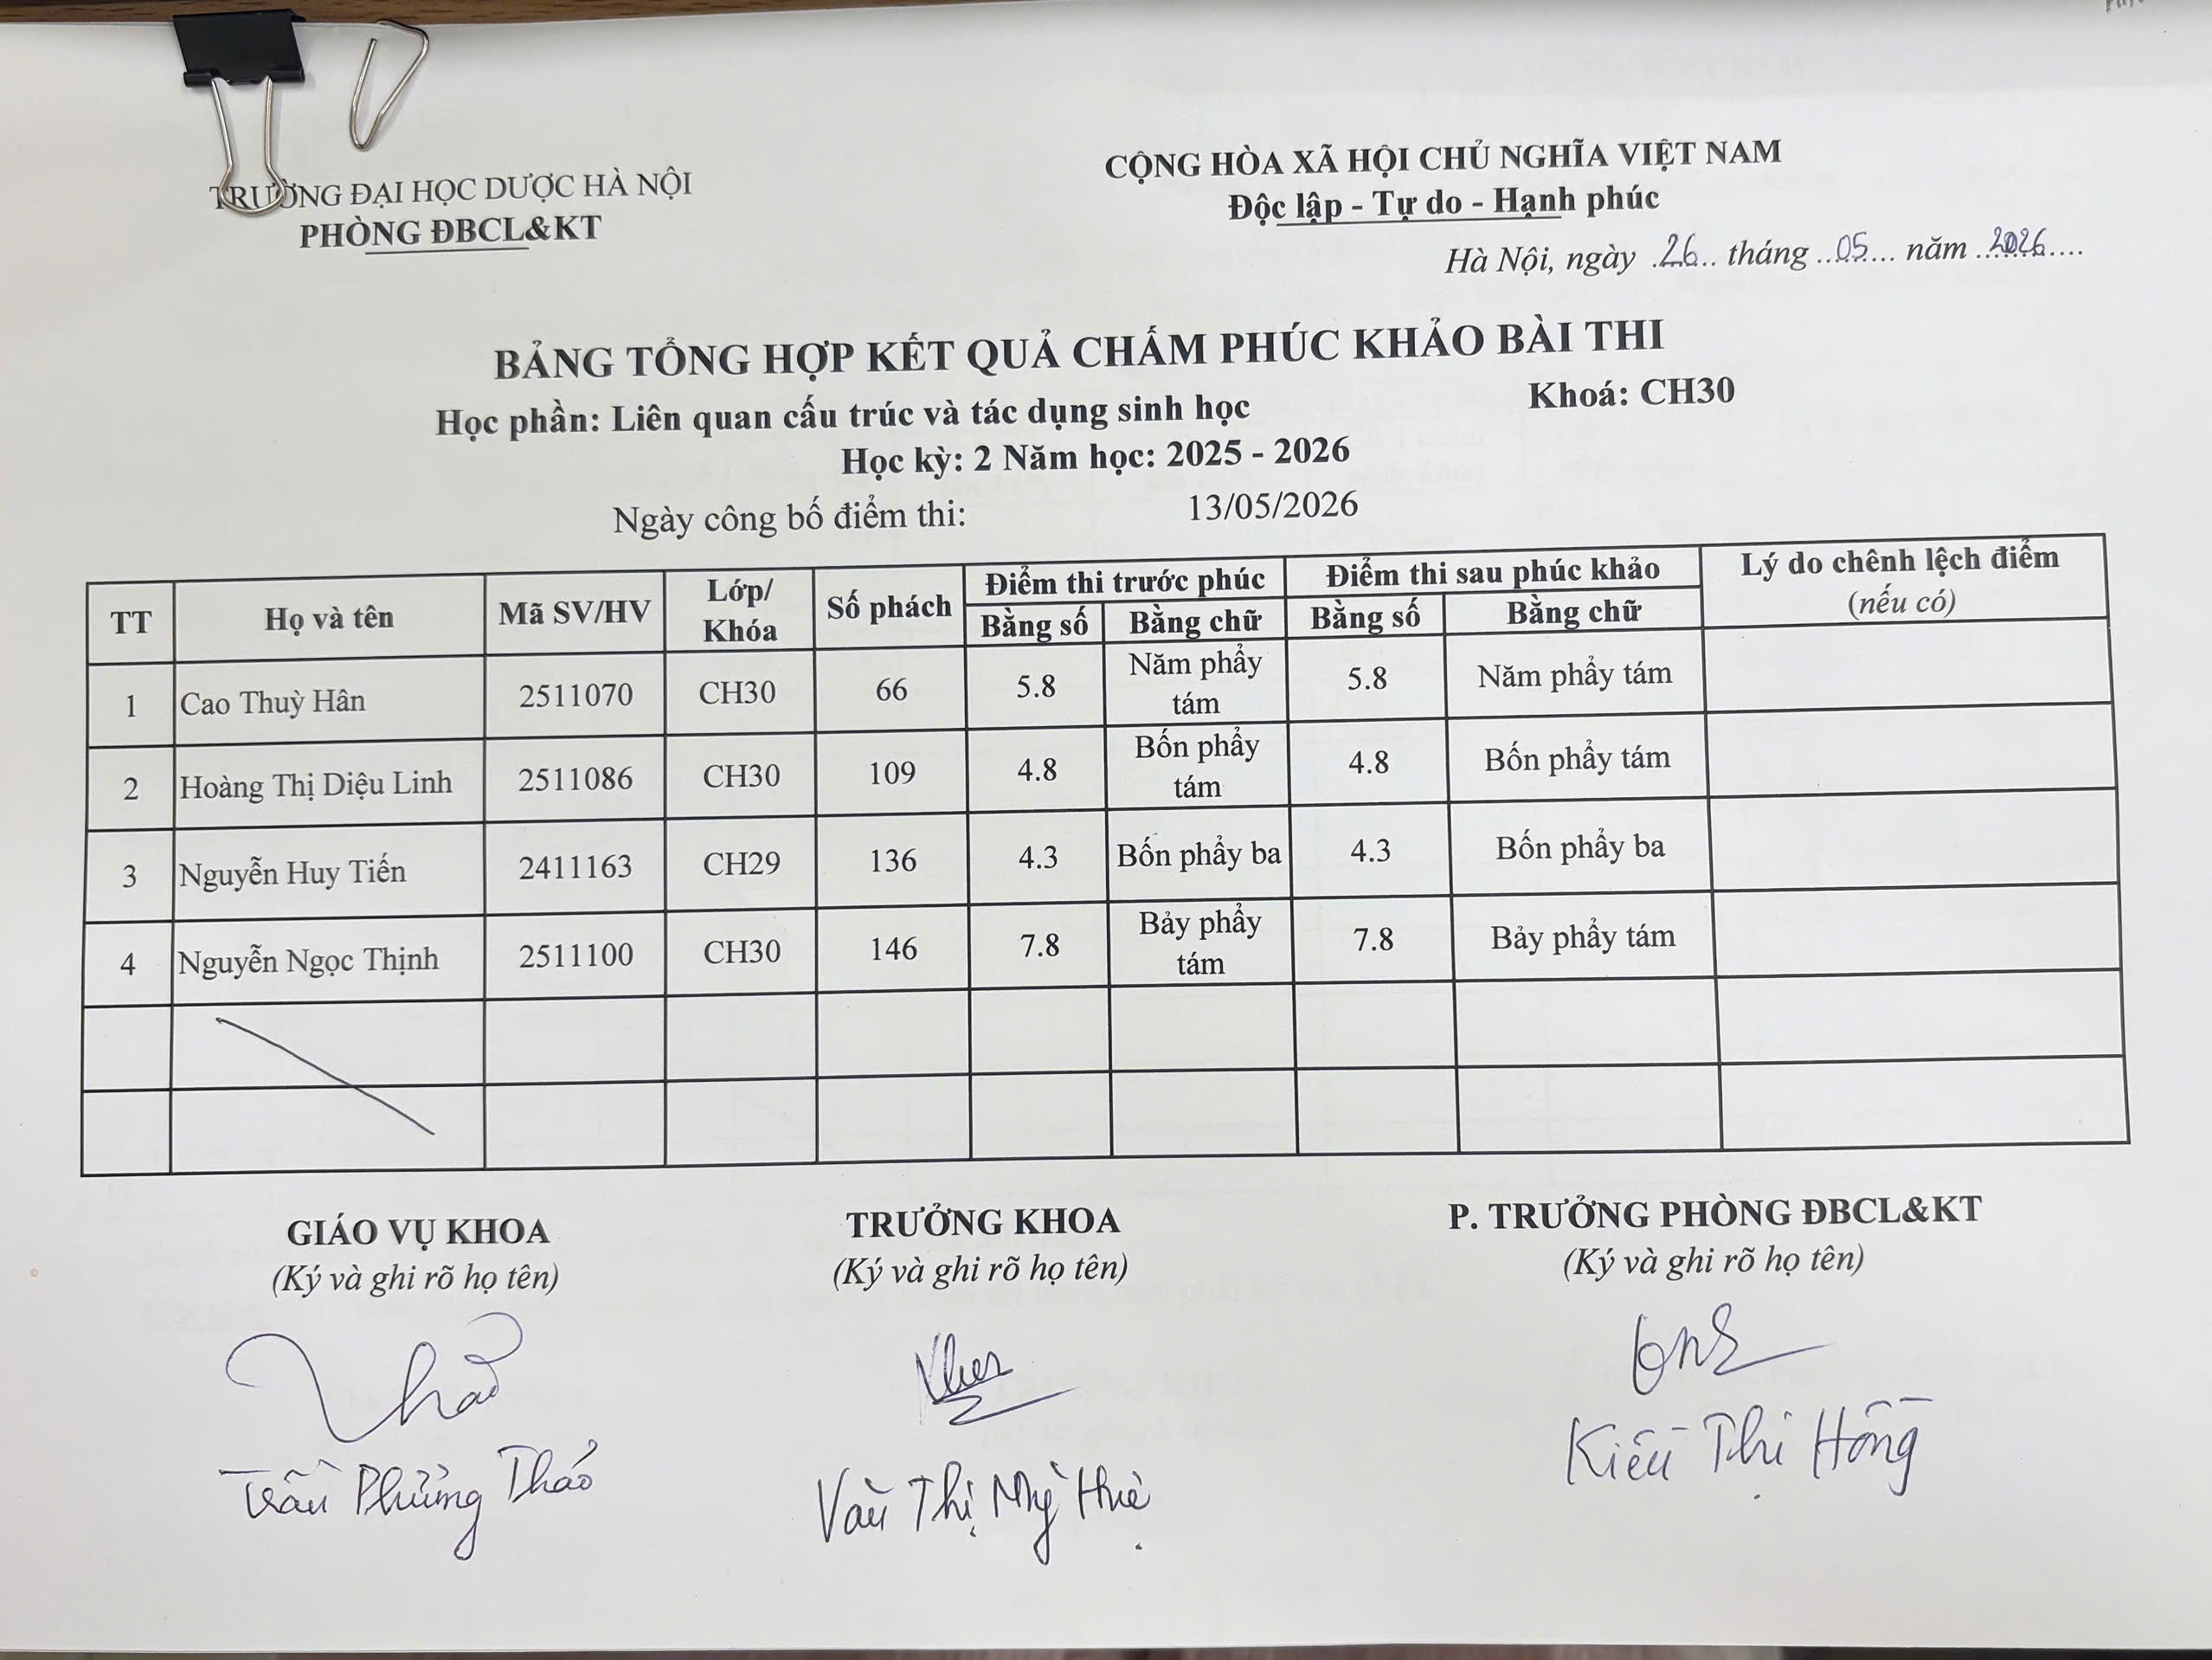 TRƯỜNG ĐẠI HỌC DƯỢC HÀ NỘI
PHÒNG ĐBCL&KT
CỘNG HÒA XÃ HỘI CHỦ NGHĨA VIỆT NAM
Độc lập - Tự do - Hạnh phúc
Hà Nội, ngày 26 tháng 05 năm 2026
BẢNG TỔNG HỢP KẾT QUẢ CHẤM PHÚC KHẢO BÀI THI
Học phần: Liên quan cấu trúc và tác dụng sinh học Khoá: CH30
Học kỳ: 2 Năm học: 2025 - 2026
Ngày công bố điểm thi: 13/05/2026
TT Họ và tên Mã SV/HV Lớp/ Khóa Số phách Điểm thi trước phúc Điểm thi sau phúc khảo Lý do chênh lệch điểm (nếu có)
Bằng số Bằng chữ Bằng số Bằng chữ
1 Cao Thuỳ Hân 2511070 CH30 66 5.8 Năm phẩy tám 5.8 Năm phẩy tám
2 Hoàng Thị Diệu Linh 2511086 CH30 109 4.8 Bốn phẩy tám 4.8 Bốn phẩy tám
3 Nguyễn Huy Tiến 2411163 CH29 136 4.3 Bốn phẩy ba 4.3 Bốn phẩy ba
4 Nguyễn Ngọc Thịnh 2511100 CH30 146 7.8 Bảy phẩy tám 7.8 Bảy phẩy tám
GIÁO VỤ KHOA
(Ký và ghi rõ họ tên)
Thảo
Trần Phương Thảo
TRƯỞNG KHOA
(Ký và ghi rõ họ tên)
Văn Thị Mỹ Huệ
P. TRƯỞNG PHÒNG ĐBCL&KT
(Ký và ghi rõ họ tên)
Kiều Thị Hồng